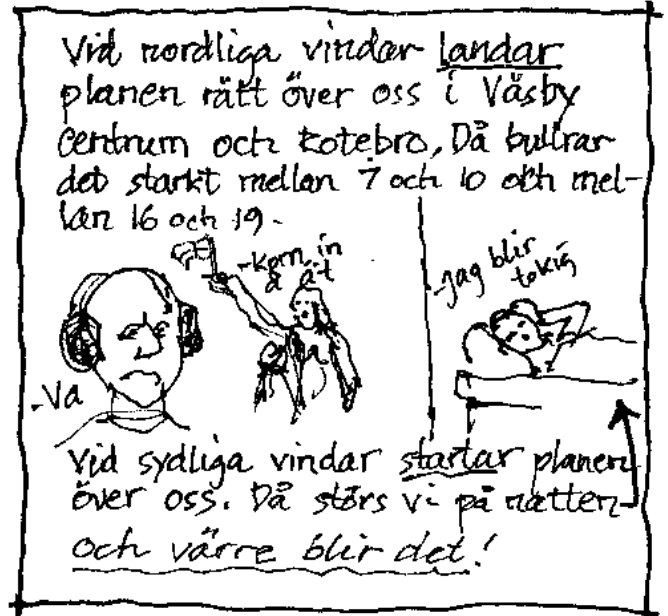 Vid nordliga vindar landar
planen rätt över oss i Väsby
centrum och Rotebro. Då bullrar
det starkt mellan 7 och 10 och mel-
lan 16 och 19.
-Kom in
å ät
-jag blir
tokig
-Va
Vid sydliga vindar startar planen
över oss. Då störs vi på natten
och värre blir det!